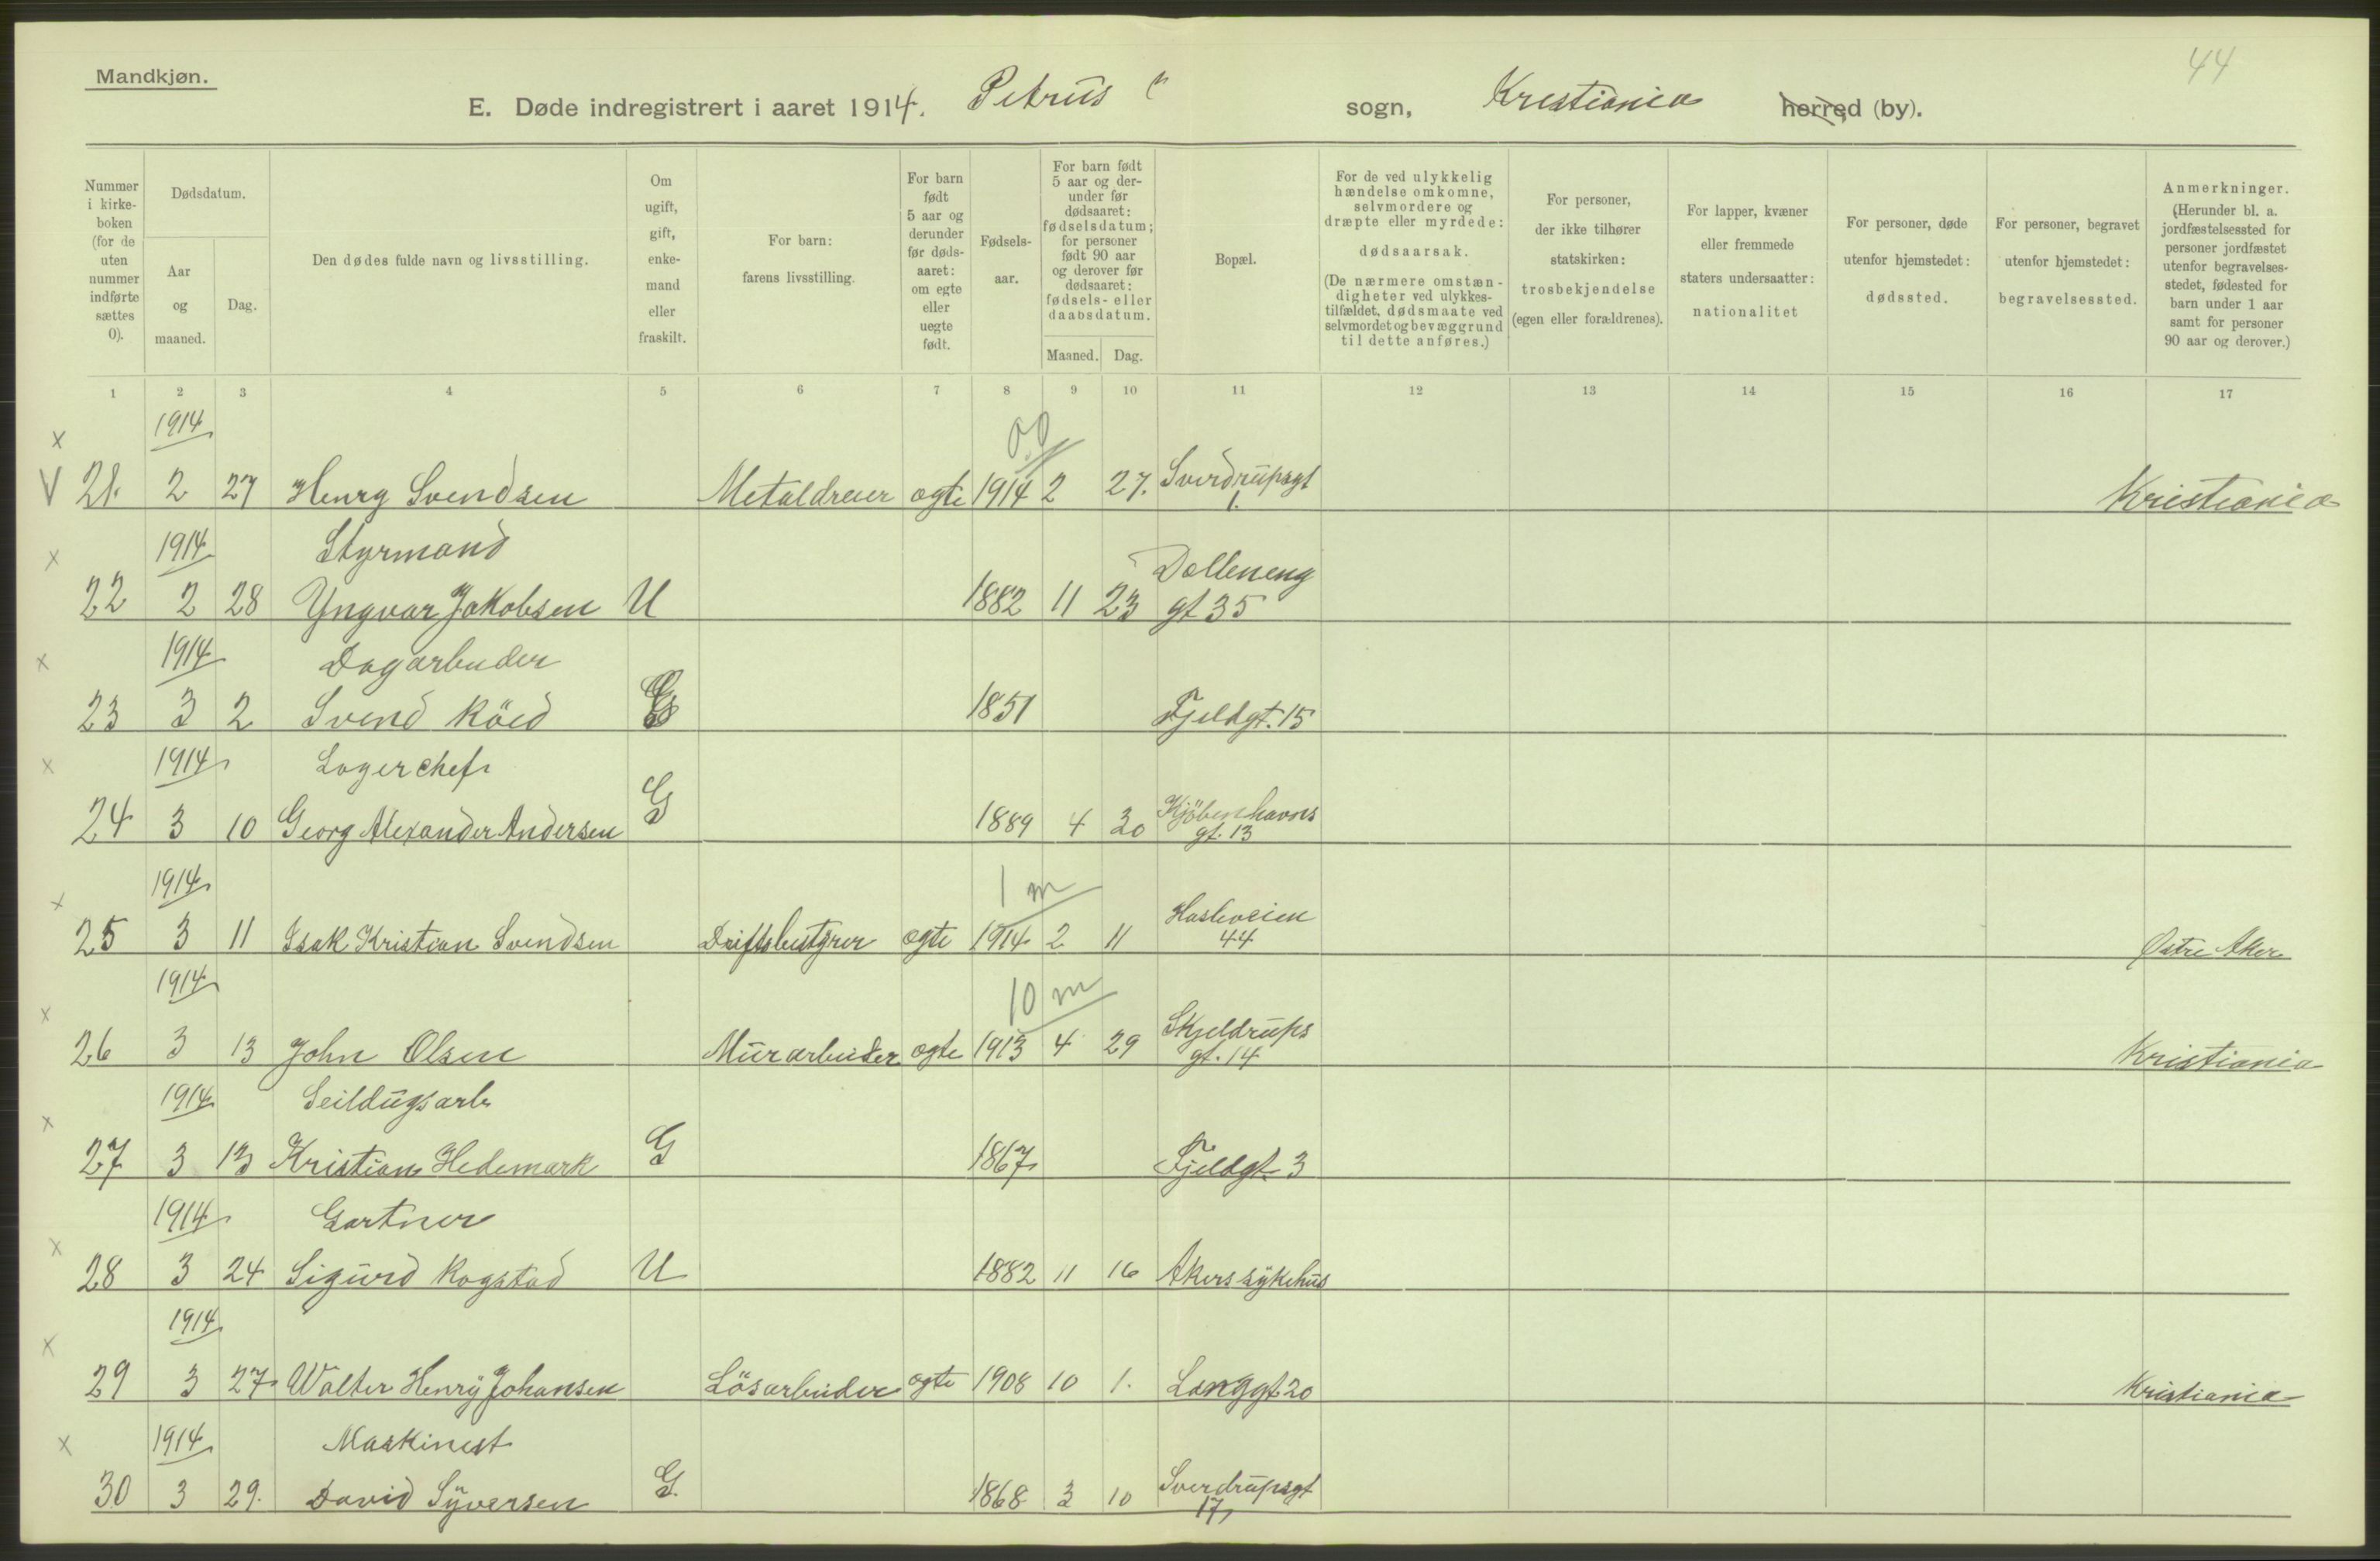 44
Mandkjøn.
E. Døde indregistrert i aaret 1914. Petrus sogn, Kristiania herred (by).
Nummer i kirkeboken (for de uten nummer indførte sættes 0).
Dødsdatum.
Aar og maaned.
Dag.
Den dødes fulde navn og livsstilling.
Om ugift, gift, enkemand eller fraskilt.
For barn: farens livsstilling.
For barn født 5 aar og derunder før dødsaaret: om egte eller uegte født.
Fødselsaar.
For barn født 5 aar og derunder før dødsaaret: fødselsdatum; for personer født 90 aar og derover før dødsaaret: fødsels- eller daabsdatum.
Maaned. Dag.
Bopæl.
For de ved ulykkelig hændelse omkomne, selvmordere og dræpte eller myrdede: dødsaarsak. (De nærmere omstændigheter ved ulykkestilfældet, dødsmaate ved selvmordet og bevæggrund til dette anføres.)
For personer, der ikke tilhører statskirken: trosbekjendelse (egen eller forældrenes).
For lapper, kvæner eller fremmede staters undersaatter: nationalitet
For personer, døde utenfor hjemstedet: dødssted.
For personer, begravet utenfor hjemstedet: begravelsessted.
Anmerkninger. (Herunder bl. a. jordfæstelsessted for personer jordfæstet utenfor begravelsesstedet, fødested for barn under 1 aar samt for personer 90 aar og derover.)
1 2 3 4 5 6 7 8 9 10 11 12 13 14 15 16 17
x 1914
V 21. 2 27 Henry Svendsen Metaldreier ogte 1914 2 27. Sverdrupsgt 1. Kristiania
x 1914 Styrmand
22 2 28 Yngvar Jakobsen U 1882 11 23 Dælleneng gt 35
x 1914 Dagarbeider
23 3 2 Svend Röed G 1851 Fjeldgt. 15
x 1914 Lagerchef
24 3 10 Georg Alexander Andersen G 1889 4 30 Kjöbenhavns gt. 13
x 1914 1 m
25 3 11 Isak Kristian Svendsen Driftsbestyrer ogte 1914 2 11 Hasleveien 44 Østre Aker
x 1914 10 m
26 3 13 John Olsen Murarbeider ogte 1913 4 29 Skjeldrups gt. 14 Kristiania
x 1914 Seildugsarb
27 3 13 Kristian Hedemark G 1867 Fjeldgt. 3
x 1914 Gartner
28 3 24 Sigurd Rogstad U 1882 11 16 Akers sykehus
x 1914
29 3 27 Walter Henry Johansen Lösarbeider ogte 1908 10 1. Langgt 20 Kristiania
x 1914 Maskinist
30 3 29. David Syversen G. 1868 3 10 Sverdrupsgt 17